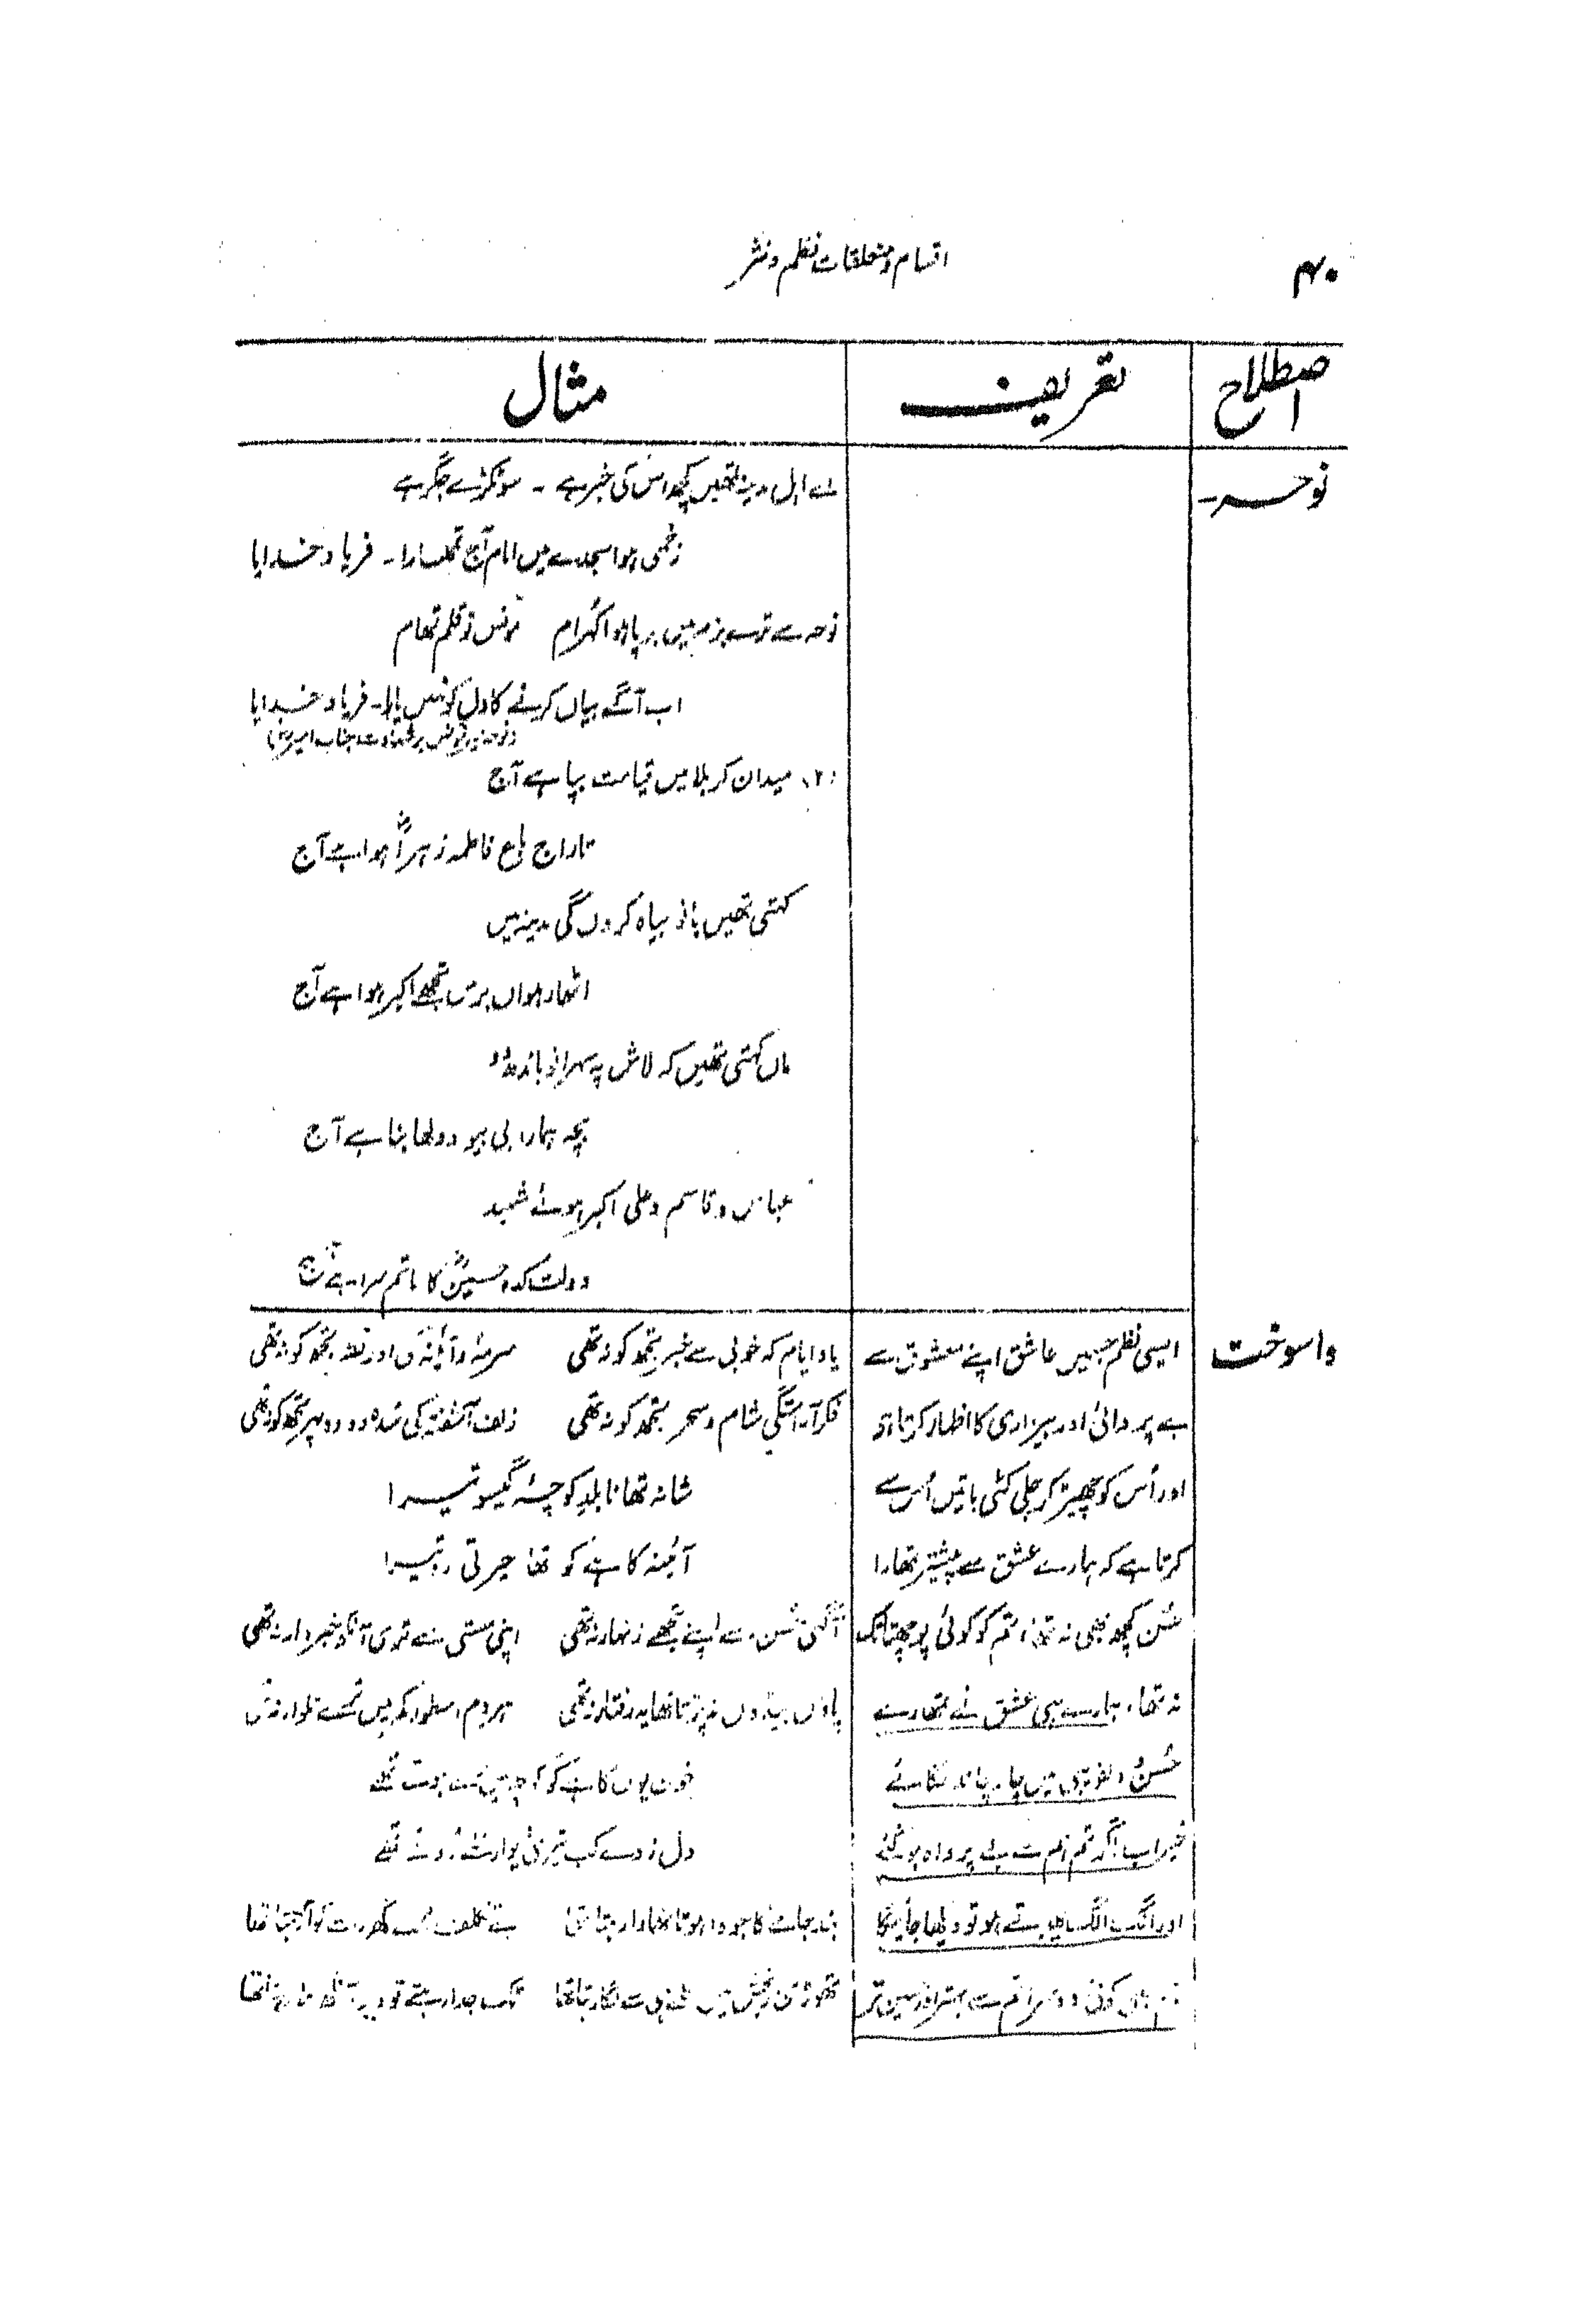 ۴۰
اقسام و متعلقات نظم و نثر
اصطلاح
تعریف
مثال
نوحہ
اے اہل مدینہ تمھیں کچھ اس کی خبر ہے - سو ٹکڑے جگر ہے
زخمی ہوا سجدے میں امام آج تمھارا - فریاد خدایا
نوحہ سے ترے بزم میں برپا ہوا کہرام مونس تو قلم تھام
اب آگے بیاں کرنے کا دل کو نہیں یارا - فریاد خدایا
(۲) میدان کربلا میں قیامت بپا ہے آج
تاراج باغ فاطمہ زہراؓ ہوا ہے آج
کہتی تھیں بانو بیاہ کروں گی مدینہ میں
اٹھارہواں برس تجھے اکبر ہوا ہے آج
ماں کہتی تھیں کہ لاش پہ سہرا تو باندھ دو
بچہ ہمارا بی بیو دولھا بنا ہے آج
عباس و قاسم و علی اکبر ہوئے شہید
دولت کدہ حسینؓ کا ماتم سرا ہے آج
واسوخت
ایسی نظم جسمیں عاشق اپنے معشوق سے
بے پروائی اور بیزاری کا اظہار کرتا ہو
اور اُس کو چھیڑ کر جلی کٹی باتیں اُس سے
کرتا ہے کہ ہمارے عشق سے پیشتر تمھارا
حُسن کچھ بھی نہ تھا، تم کو کوئی پوچھتا تک
نہ تھا، ہمارے ہی عشق نے تمھارے
حُسن و دلفریبی میں چار چاند لگائے
خیر اب اگر تم ہم سے بے پرواہ ہو گئے
اور الگ الگ رہتے ہو تو دیکھا جائیگا
کوئی دوسرا تم سے بہتر اور حسین تر
یاد ایام کہ خوبی سے خبر تجھ کو نہ تھی سرمہ و آئینہ کی اور نظر تجھ کو نہ تھی
فکر آراستگی شام و سحر تجھ کو نہ تھی زلف آشفتہ کی سدھ دو دو پہر تجھ کو نہ تھی
شانہ تھا نابلد کوچۂ گیسو تیرا
آئینہ کاہے کو تھا حیرتی رو تیرا
آگہی حُسن سے اپنے تجھے زنہار نہ تھی اپنی مستی سے تری آنکھ خبردار نہ تھی
پاؤں بیڈول نہ پڑتا تھا یہ رفتار نہ تھی ہر دم اسطور کمر میں ترے تلوار نہ تھی
خون یوں کاہے کو کوچہ میں ترے ہوتے تھے
دل زدے کب تری دیوار تلے روتے تھے